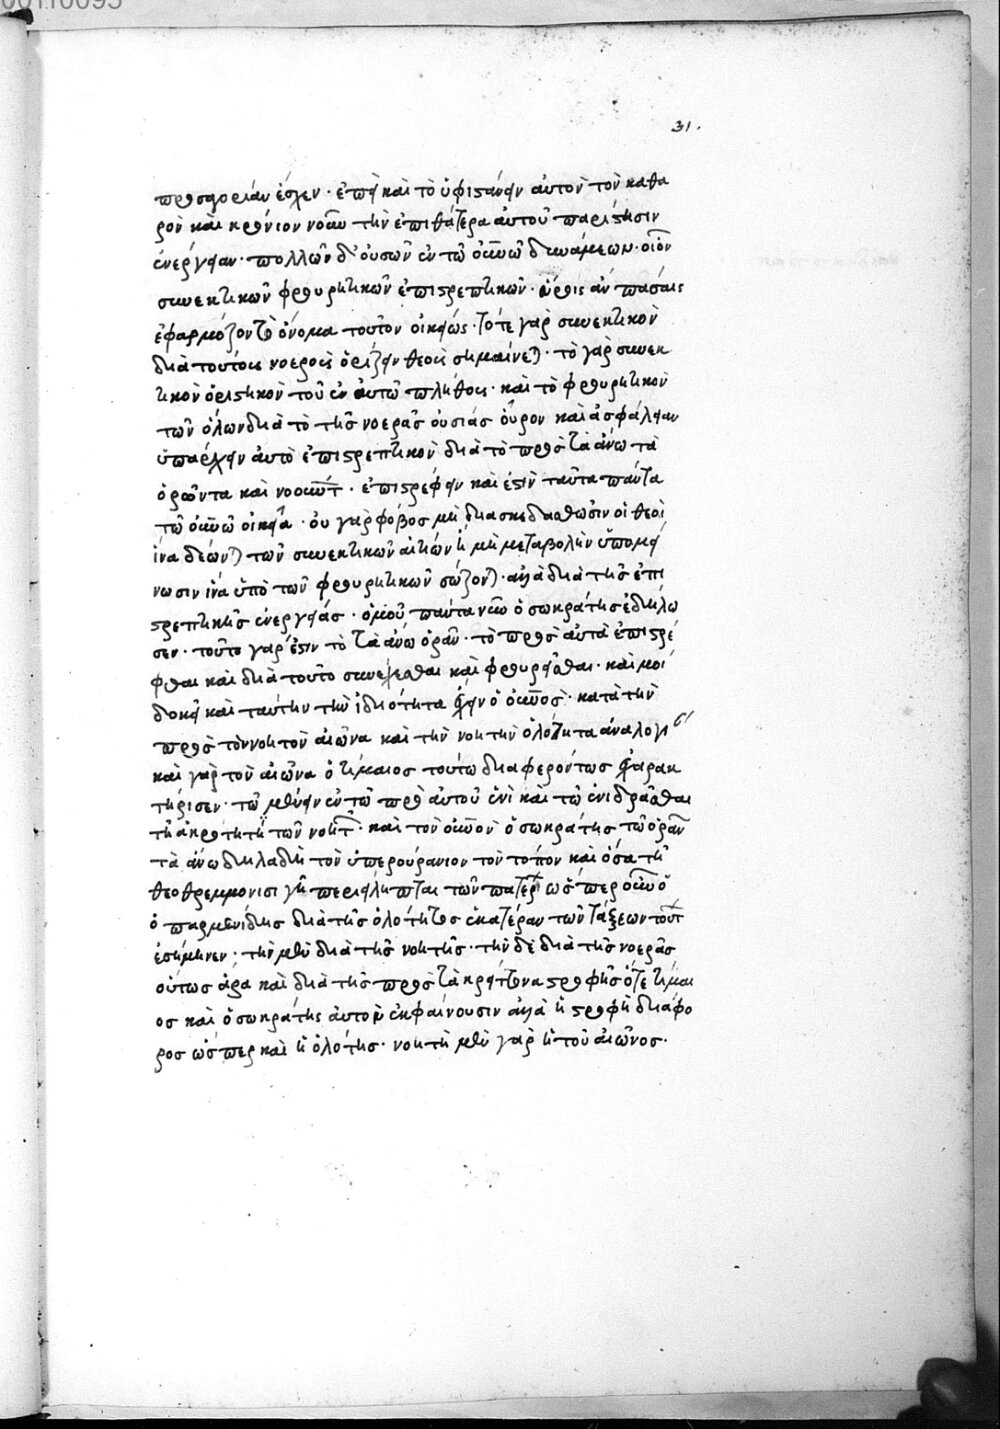 31.
προσηγορίαν ἔσχεν · ἐπεὶ καὶ τὸ ὑφιστάνειν αὐτὸν τὸν καθα
ρὸν καὶ κρόνιον νοῦν τὴν ἐπὶ θάτερα αὐτοῦ παρίστησιν
ἐνέργειαν · πολλῶν δ' οὐσῶν ἐν τῷ οὐνῷ δυνάμεων · οἷον
συνεκτικῶν φρουρητικῶν ἐπιστρεπτικῶν · εὕροις ἂν πάσαις
ἐφαρμόζον τὸ ὄνομα τοῦτον οἰκείως · τό τε γὰρ συνεκτικὸν
διὰ τούτοις νοεροῖς ὁρίζειν θεοῖς σημαίνεται · τὸ γὰρ συνεκ
τικὸν ὁριστικὸν τοῦ ἐν αὐτῷ πλήθους · καὶ τὸ φρουρητικὸν
τῶν ὅλων διὰ τὸ τῆς νοερᾶς οὐσίας οὖρον καὶ ἀσφάλειαν
ὑπάρχειν αὐτὸ ἐπιστρεπτικὸν διὰ τὸ πρὸς τὰ ἄνω τὰ
ὁρῶντα καὶ νοοῦντ · ἐπιστρέφειν καὶ ἔστιν ταῦτα πάντα
τῷ οὐνῷ οἰκεῖα · οὐ γὰρ φόβος μὴ διασκεδασθῶσιν οἱ θεοὶ
ἵνα δέωνται τῶν συνεκτικῶν αἰτιῶν ἢ μὴ μεταβολὴν ὑπομεί
νωσιν ἵνα ὑπὸ τῶν φρουρητικῶν σῴζονται · ἀλλὰ διὰ τῆς ἐπι
στρεπτικῆς ἐνεργείας · ὁμοῦ πάντα νῦν ὁ σωκράτης ἐδήλω
σεν · τοῦτο γάρ ἐστιν τὸ τὰ ἄνω ὁρᾶν · τὸ πρὸς αὐτὰ ἐπιστρέ
φεσθαι καὶ διὰ τοῦτο συνέχεσθαι καὶ φρουρεῖσθαι · καί μοι
δοκεῖ καὶ ταύτην τὴν ἰδιότητα ἔχειν ὁ οὐνὸς · κατὰ τὴν
πρὸς τὸν νοητὸν αἰῶνα καὶ τὴν νοητὴν ὁλότητα ἀναλογί
καὶ γὰρ τὸν αἰῶνα ὁ τίμαιος τούτῳ διαφερόντως ἐχαρακ
τήρισεν · τῷ μένειν ἐν τῷ πρὸ αὐτοῦ ἑνὶ καὶ τῷ ἐνιδρᾶσθαι
τῇ ἀκρότητι τῶν νοητ · καὶ τὸν οὐνὸν ὁ σωκράτης τῷ ὁρᾶν
τὰ ἄνω δηλαδὴ τὸν ὑπερουράνιον τὸν τόπον καὶ ὅσα τῇ
θεοθρέμμονι σιγῇ περιείληπται τῶν πατέρ ὥσπερ οὖν ὁ
ὁ παρμενίδης διὰ τῆς ὁλότητος ἑκατέραν τῶν τάξεων τούτ
ἐσήμηνεν · τὴν μὲν διὰ τῆς νοητῆς · τὴν δὲ διὰ τῆς νοερᾶς
οὕτως ἄρα καὶ διὰ τῆς πρὸς τὰ κρείττονα στροφῆς ὅ τε τίμαι
ος καὶ ὁ σωκράτης αὐτὸν ἐκφαίνουσιν ἀλλὰ ἡ στροφὴ διάφο
ρος ὥσπερ καὶ ἡ ὁλότης · νοητὴ μὲν γὰρ ἡ τοῦ αἰῶνος ·